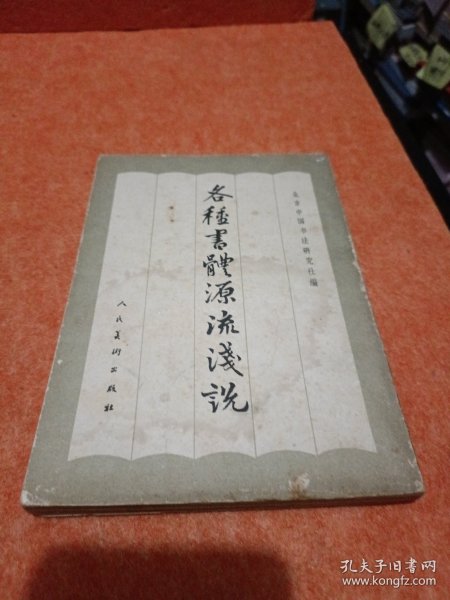 北京中国书法研究社编
各種書體源流淺説
人民美術出版社
孔夫子旧书网
www.kongfz.com